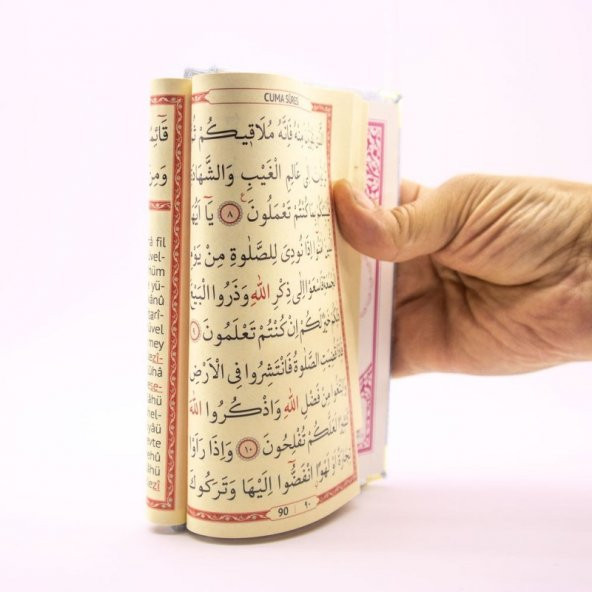 CUMA SÛRES
مِنْهُ فَاِنَّهُ مُلَاقِيكُمْ
عَالِمِ الْغَيْبِ وَالشَّهَادَ
كُنْتُمْ تَعْمَلُونَ ٨ يَٓا اَيُّهَا
اِذَا نُودِىَ لِلصَّلٰوةِ مِنْ يَوْ
فَاسْعَوْا اِلٰى ذِكْرِ اللّٰهِ وَذَرُوا الْبَيْعَ
لَكُمْ اِنْ كُنْتُمْ تَعْلَمُونَ
الصَّلٰوةُ فَانْتَشِرُوا فِى الْاَرْضِ
مِنْ فَضْلِ اللّٰهِ وَاذْكُرُوا اللّٰهَ
لَعَلَّكُمْ تُفْلِحُونَ ١٠ وَاِذَا رَاَوْا
اَوْ لَهْوًا انْفَضُّٓوا اِلَيْهَا وَتَرَكُوكَ
90 ٩٠
قَٓائِمً
وَمِنَ
fil
vel-
hüm
yü-
ânû
arî-
üvel
mey
ezî-
ühâ
ese-
âhü
hel-
yâü
evte
ehû
âhü
ezî